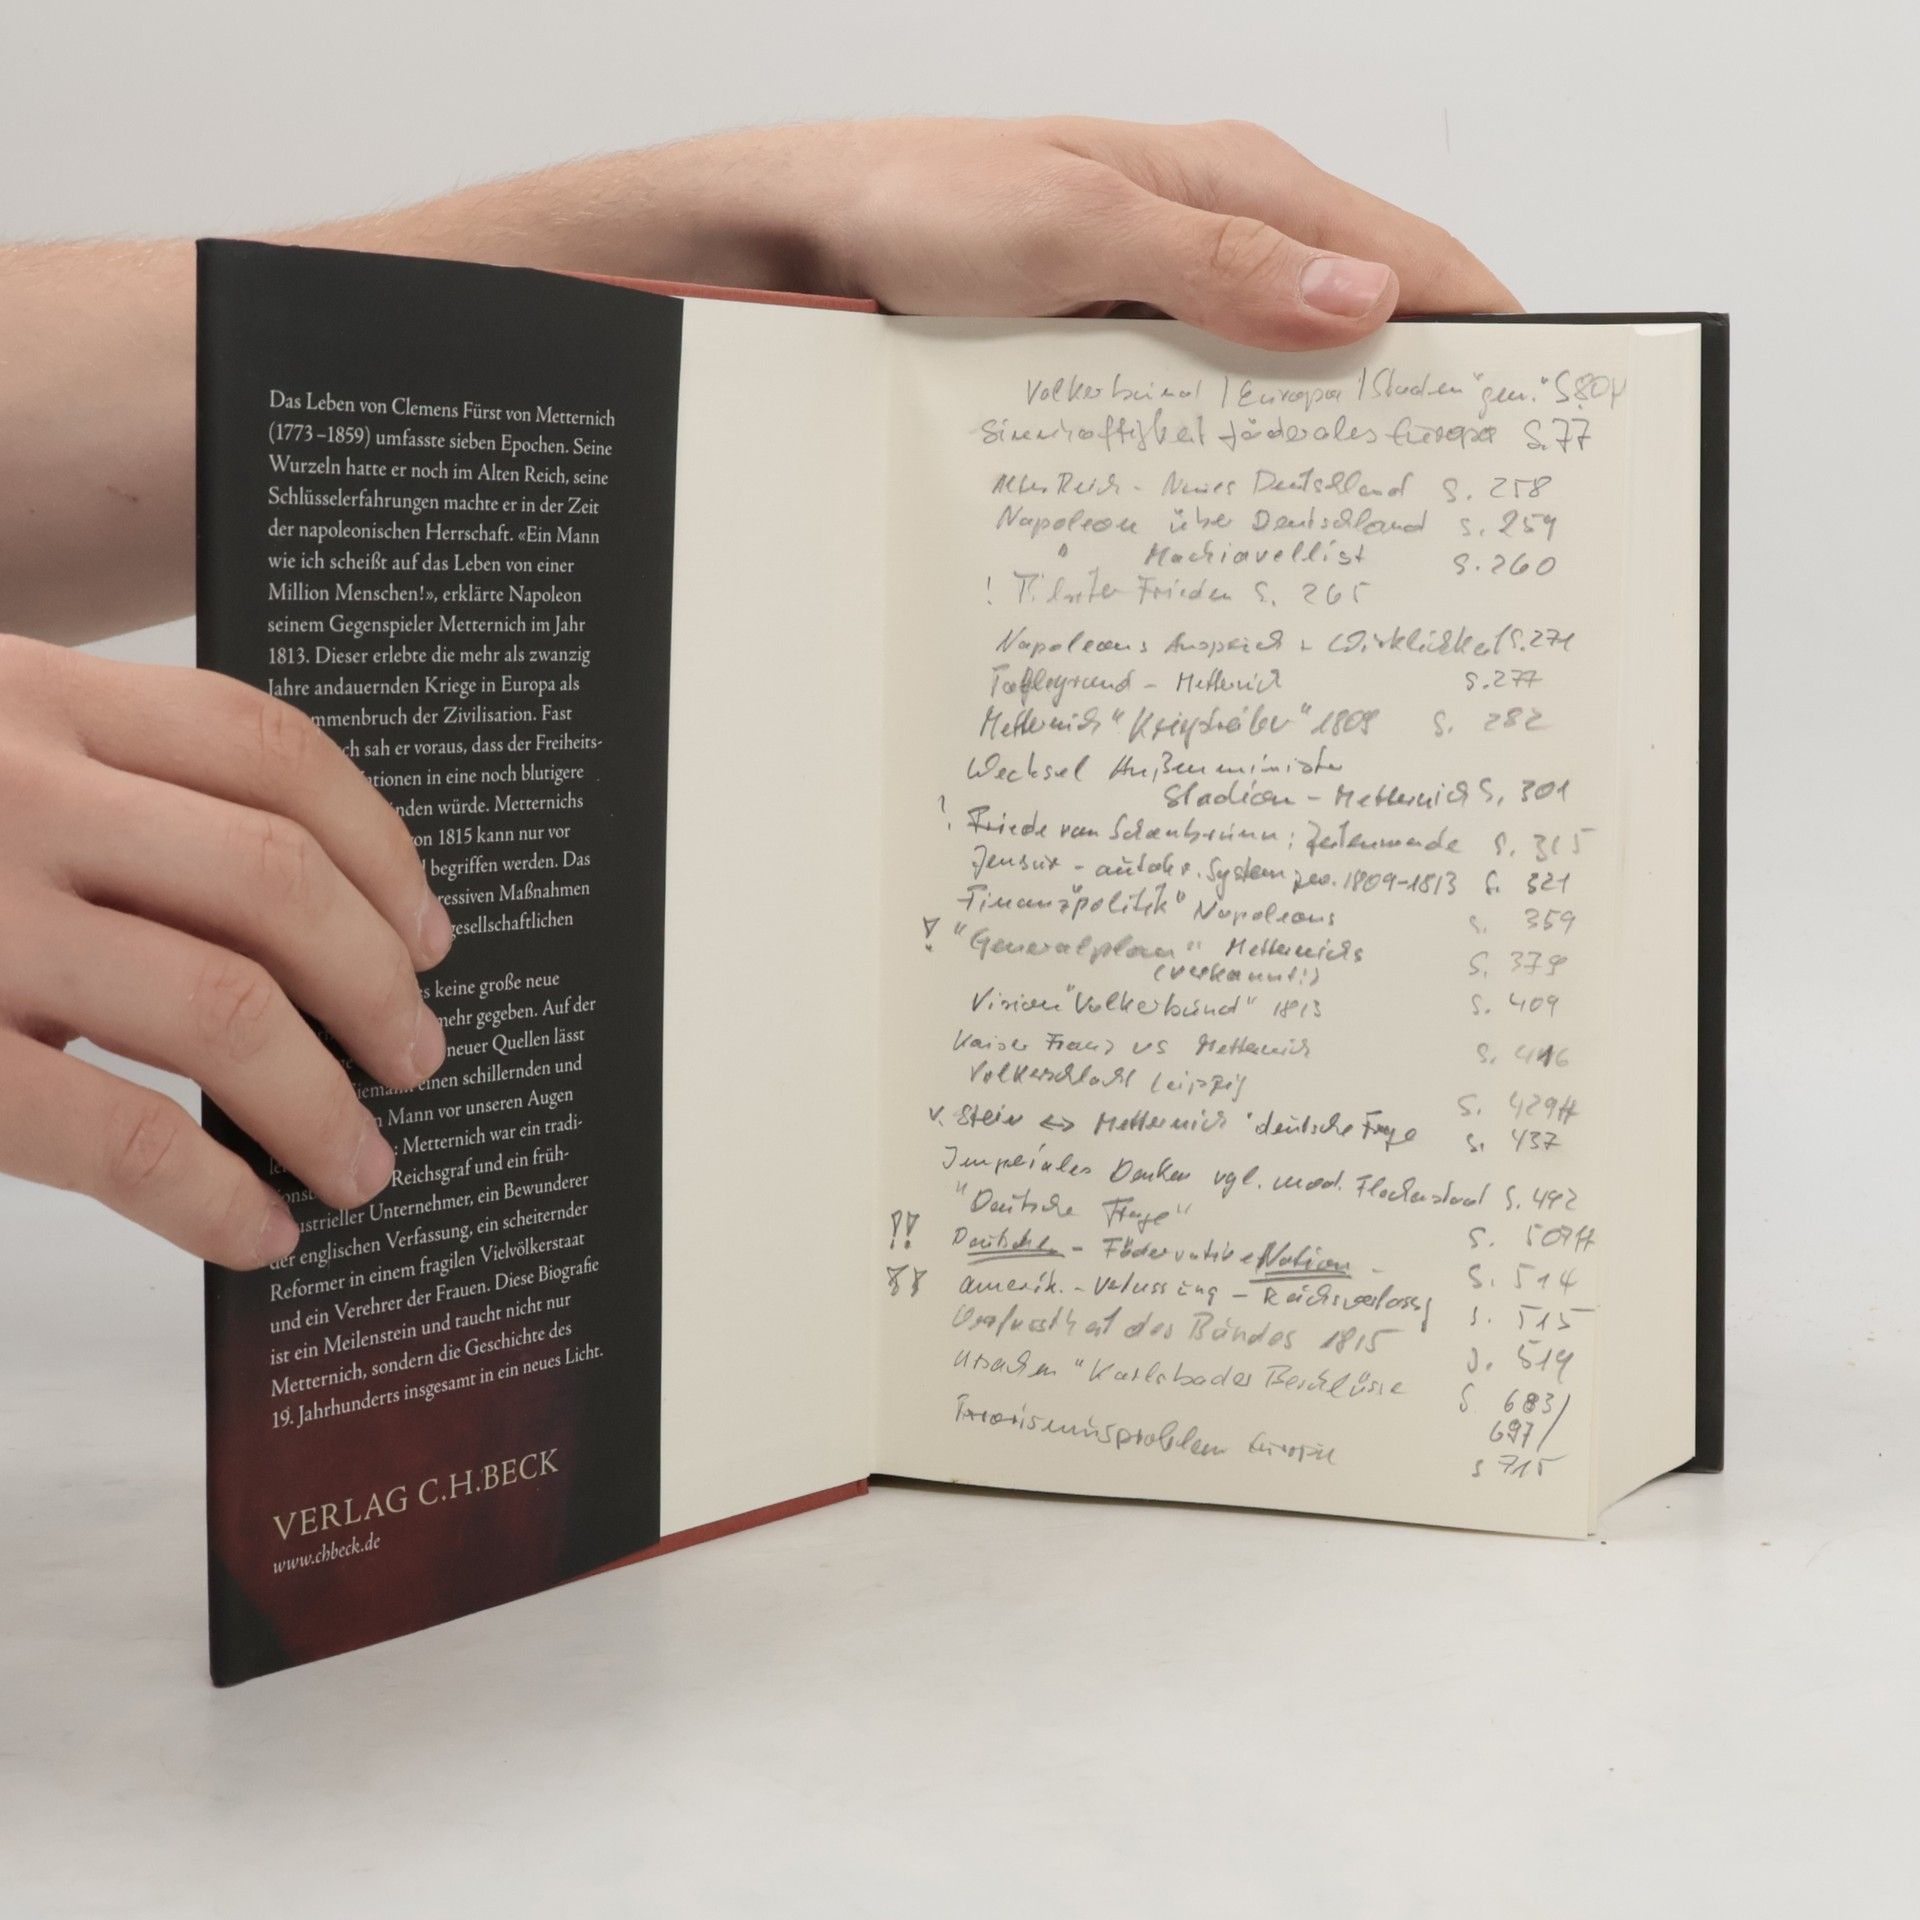 Das Leben von Clemens Fürst von Metternich
(1773–1859) umfasste sieben Epochen. Seine
Wurzeln hatte er noch im Alten Reich, seine
Schlüsselerfahrungen machte er in der Zeit
der napoleonischen Herrschaft. «Ein Mann
wie ich scheißt auf das Leben von einer
Million Menschen!», erklärte Napoleon
seinem Gegenspieler Metternich im Jahr
1813. Dieser erlebte die mehr als zwanzig
Jahre andauernden Kriege in Europa als
mmenbruch der Zivilisation. Fast
ch sah er voraus, dass der Freiheits-
ationen in eine noch blutigere
nden würde. Metternichs
on 1815 kann nur vor
begriffen werden. Das
ressiven Maßnahmen
gesellschaftlichen
s keine große neue
mehr gegeben. Auf der
neuer Quellen lässt
iemann einen schillernden und
n Mann vor unseren Augen
: Metternich war ein tradi-
Reichsgraf und ein früh-
ustrieller Unternehmer, ein Bewunderer
der englischen Verfassung, ein scheiternder
Reformer in einem fragilen Vielvölkerstaat
und ein Verehrer der Frauen. Diese Biografie
ist ein Meilenstein und taucht nicht nur
Metternich, sondern die Geschichte des
19. Jahrhunderts insgesamt in ein neues Licht.
VERLAG C.H.BECK
www.chbeck.de
Völkerbund / Europa / S. 804
Sinnhaftigkeit föderales Europa S. 77
Altes Reich - Neues Deutschland S. 258
Napoleon über Deutschland S. 259
" Machiavellist S. 260
! Tilsiter Frieden S. 265
Napoleons Anspruch + Wirklichkeit S. 271
Talleyrand - Metternich S. 277
Metternich 1809 S. 282
Wechsel Außenminister
Stadion - Metternich S. 301
! Friede von Schönbrunn; Zeitenwende S. 315
Zensur - autokr. System 1809-1813 S. 321
"Finanzpolitik" Napoleons S. 359
! "Generalplan" Metternichs S. 379
(verkannt!)
Vision "Völkerbund" 1813 S. 409
Kaiser Franz vs Metternich S. 416
Völkerschlacht Leipzig S. 429ff
v. Stein <-> Metternich "deutsche Frage S. 437
Imperiales Denken vgl. mod. S. 492
"Deutsche Frage" S. 507ff
!! Deutsche - Föderative Nation - S. 514
!! amerik. - Verfassung - Reichsverfassg S. 515
des Bundes 1815 S. 519
Ursachen "Karlsbader Beschlüsse S. 683/
697/
Terrorismusproblem Europa S. 715